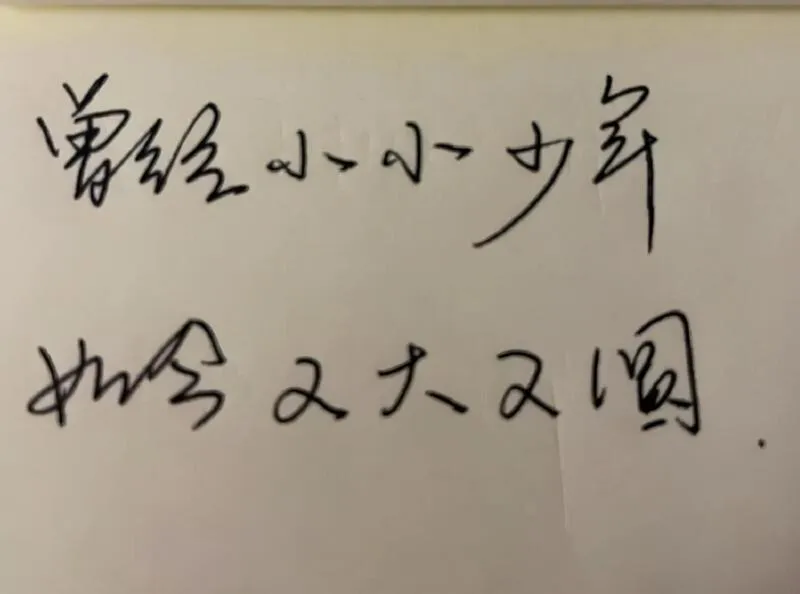 曾经小小少年
如今又大又圆.